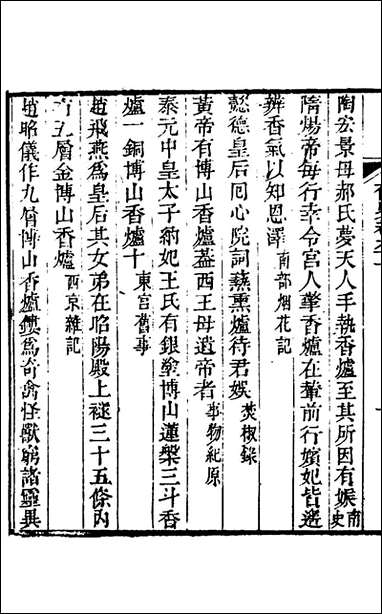 陶宏景母郝氏夢天人手執香爐至其所因有娠南史
隋煬帝每行幸令宮人擎香爐在輦前行嬪妃皆遙
辨香氣以知恩澤南部烟花記
懿德皇后回心院詞爇熏爐待君娛焚椒錄
黃帝有博山香爐葢西王母遺帝者事物紀原
泰元中皇太子納妃王氏有銀塗博山蓮槃三斗香
爐一銅博山香爐十東宮舊事
趙飛燕爲皇后其女弟在昭陽殿上襚三十五條内
有五層金博山香爐西京雜記
趙昭儀作九層博山香爐鏤爲奇禽怪獸窮諸靈異